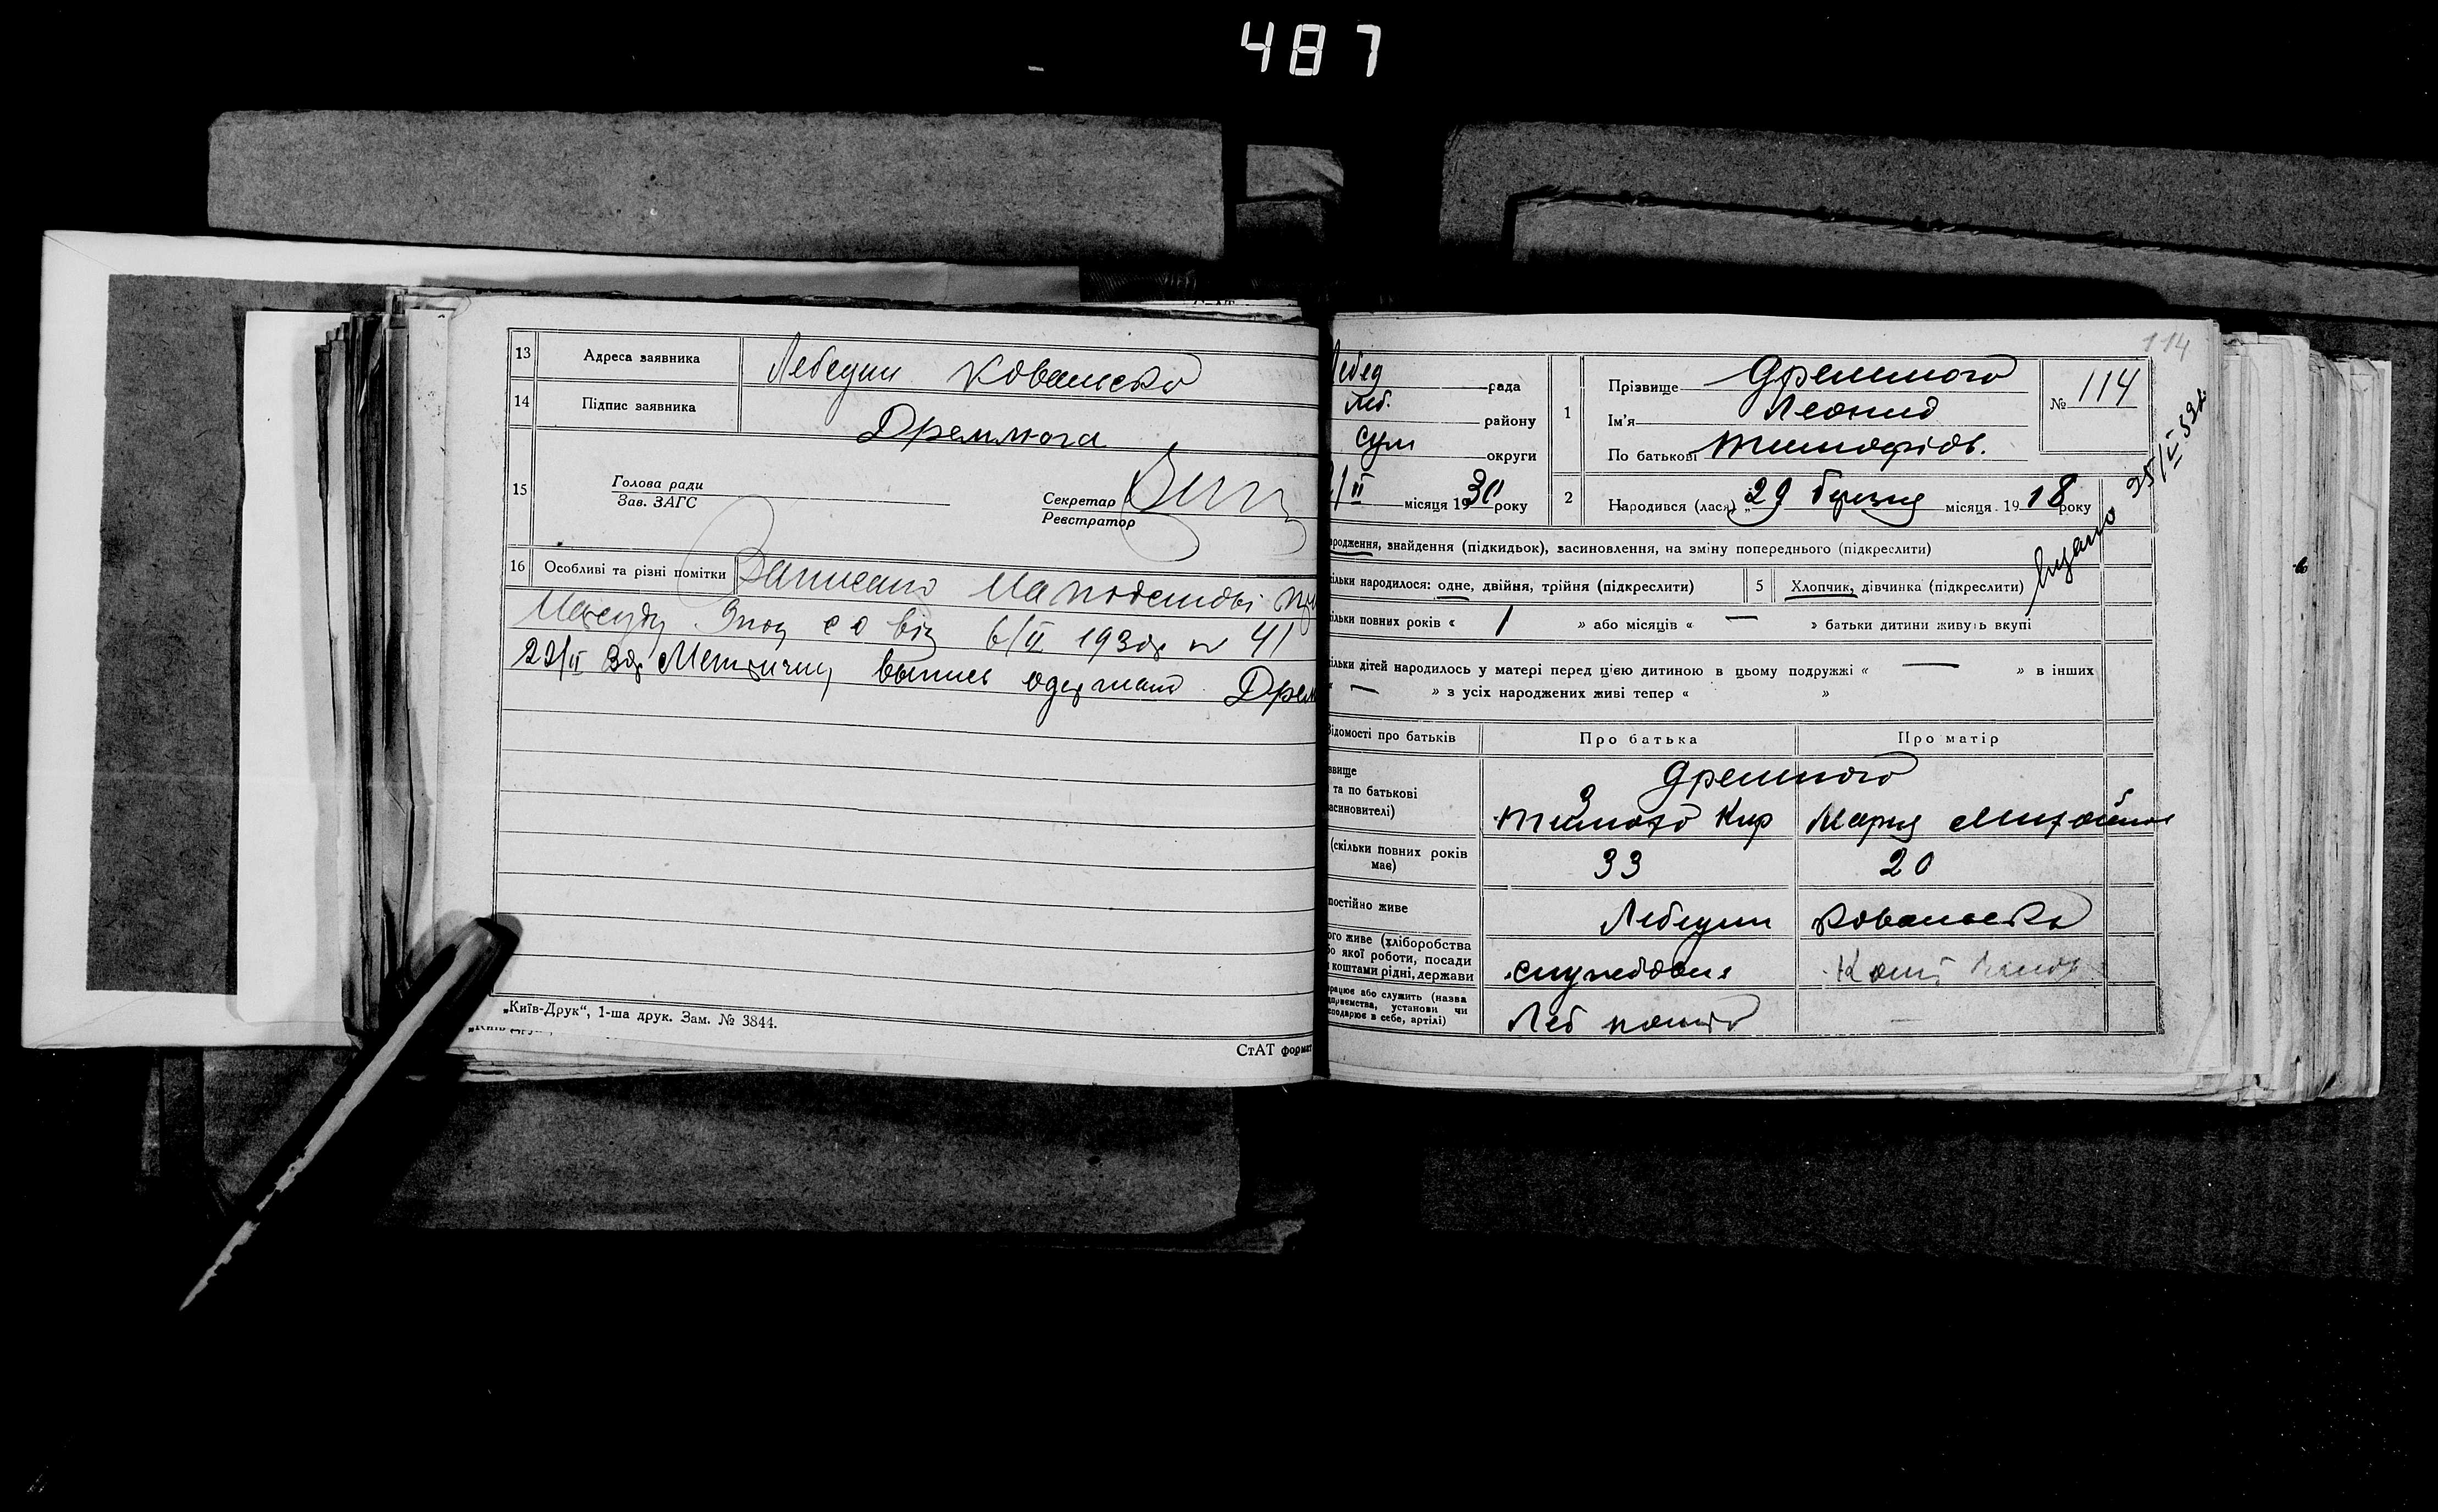 487
13 Адреса заявника Лебедин Ковальська
14 Підпис заявника Дремлюга
15 Голова ради
Зав. ЗАГС
Секретар
Реєстратор
16 Особливі та різні помітки Записано на підставі
від 6/II 1930р № 41
22/II 30р Метричну выпись одержала Дрем
„Київ-Друк“, 1-ша друк. Зам. № 3844.
СтАТ формат
114
Лебед рада
Леб. району
Сум округи
/II місяця 1930 року
1 Прізвище Дремлюга
Ім'я Леонид
По батькові Тимофіов.
№ 114
2 Народився (лася) „29 березня місяця 1918 року
родження, знайдення (підкидьок), засиновлення, на зміну попереднього (підкреслити)
ільки народилося: одне, двійня, трійня (підкреслити) 5 Хлопчик, дівчинка (підкреслити)
ільки повних років « 1 » або місяців « — » батьки дитини живуть вкупі
ільки дітей народилось у матері перед цією дитиною в цьому подружжі « — » в інших
« — » з усіх народжених живі тепер « »
Відомості про батьків Про батька Про матір
звище
та по батькові
асиновителі)
Дремлюга
Тимофій Кир Мария Михайлов
(скільки повних років має) 33 20
постійно живе Лебедин Ковальська
ого живе (хліборобства
бо якої роботи, посади
коштами рідні, держави
службовия
рацює або служить (назва
дприємства, установи чи
сподарює в себе, артілі)
Леб пошта —